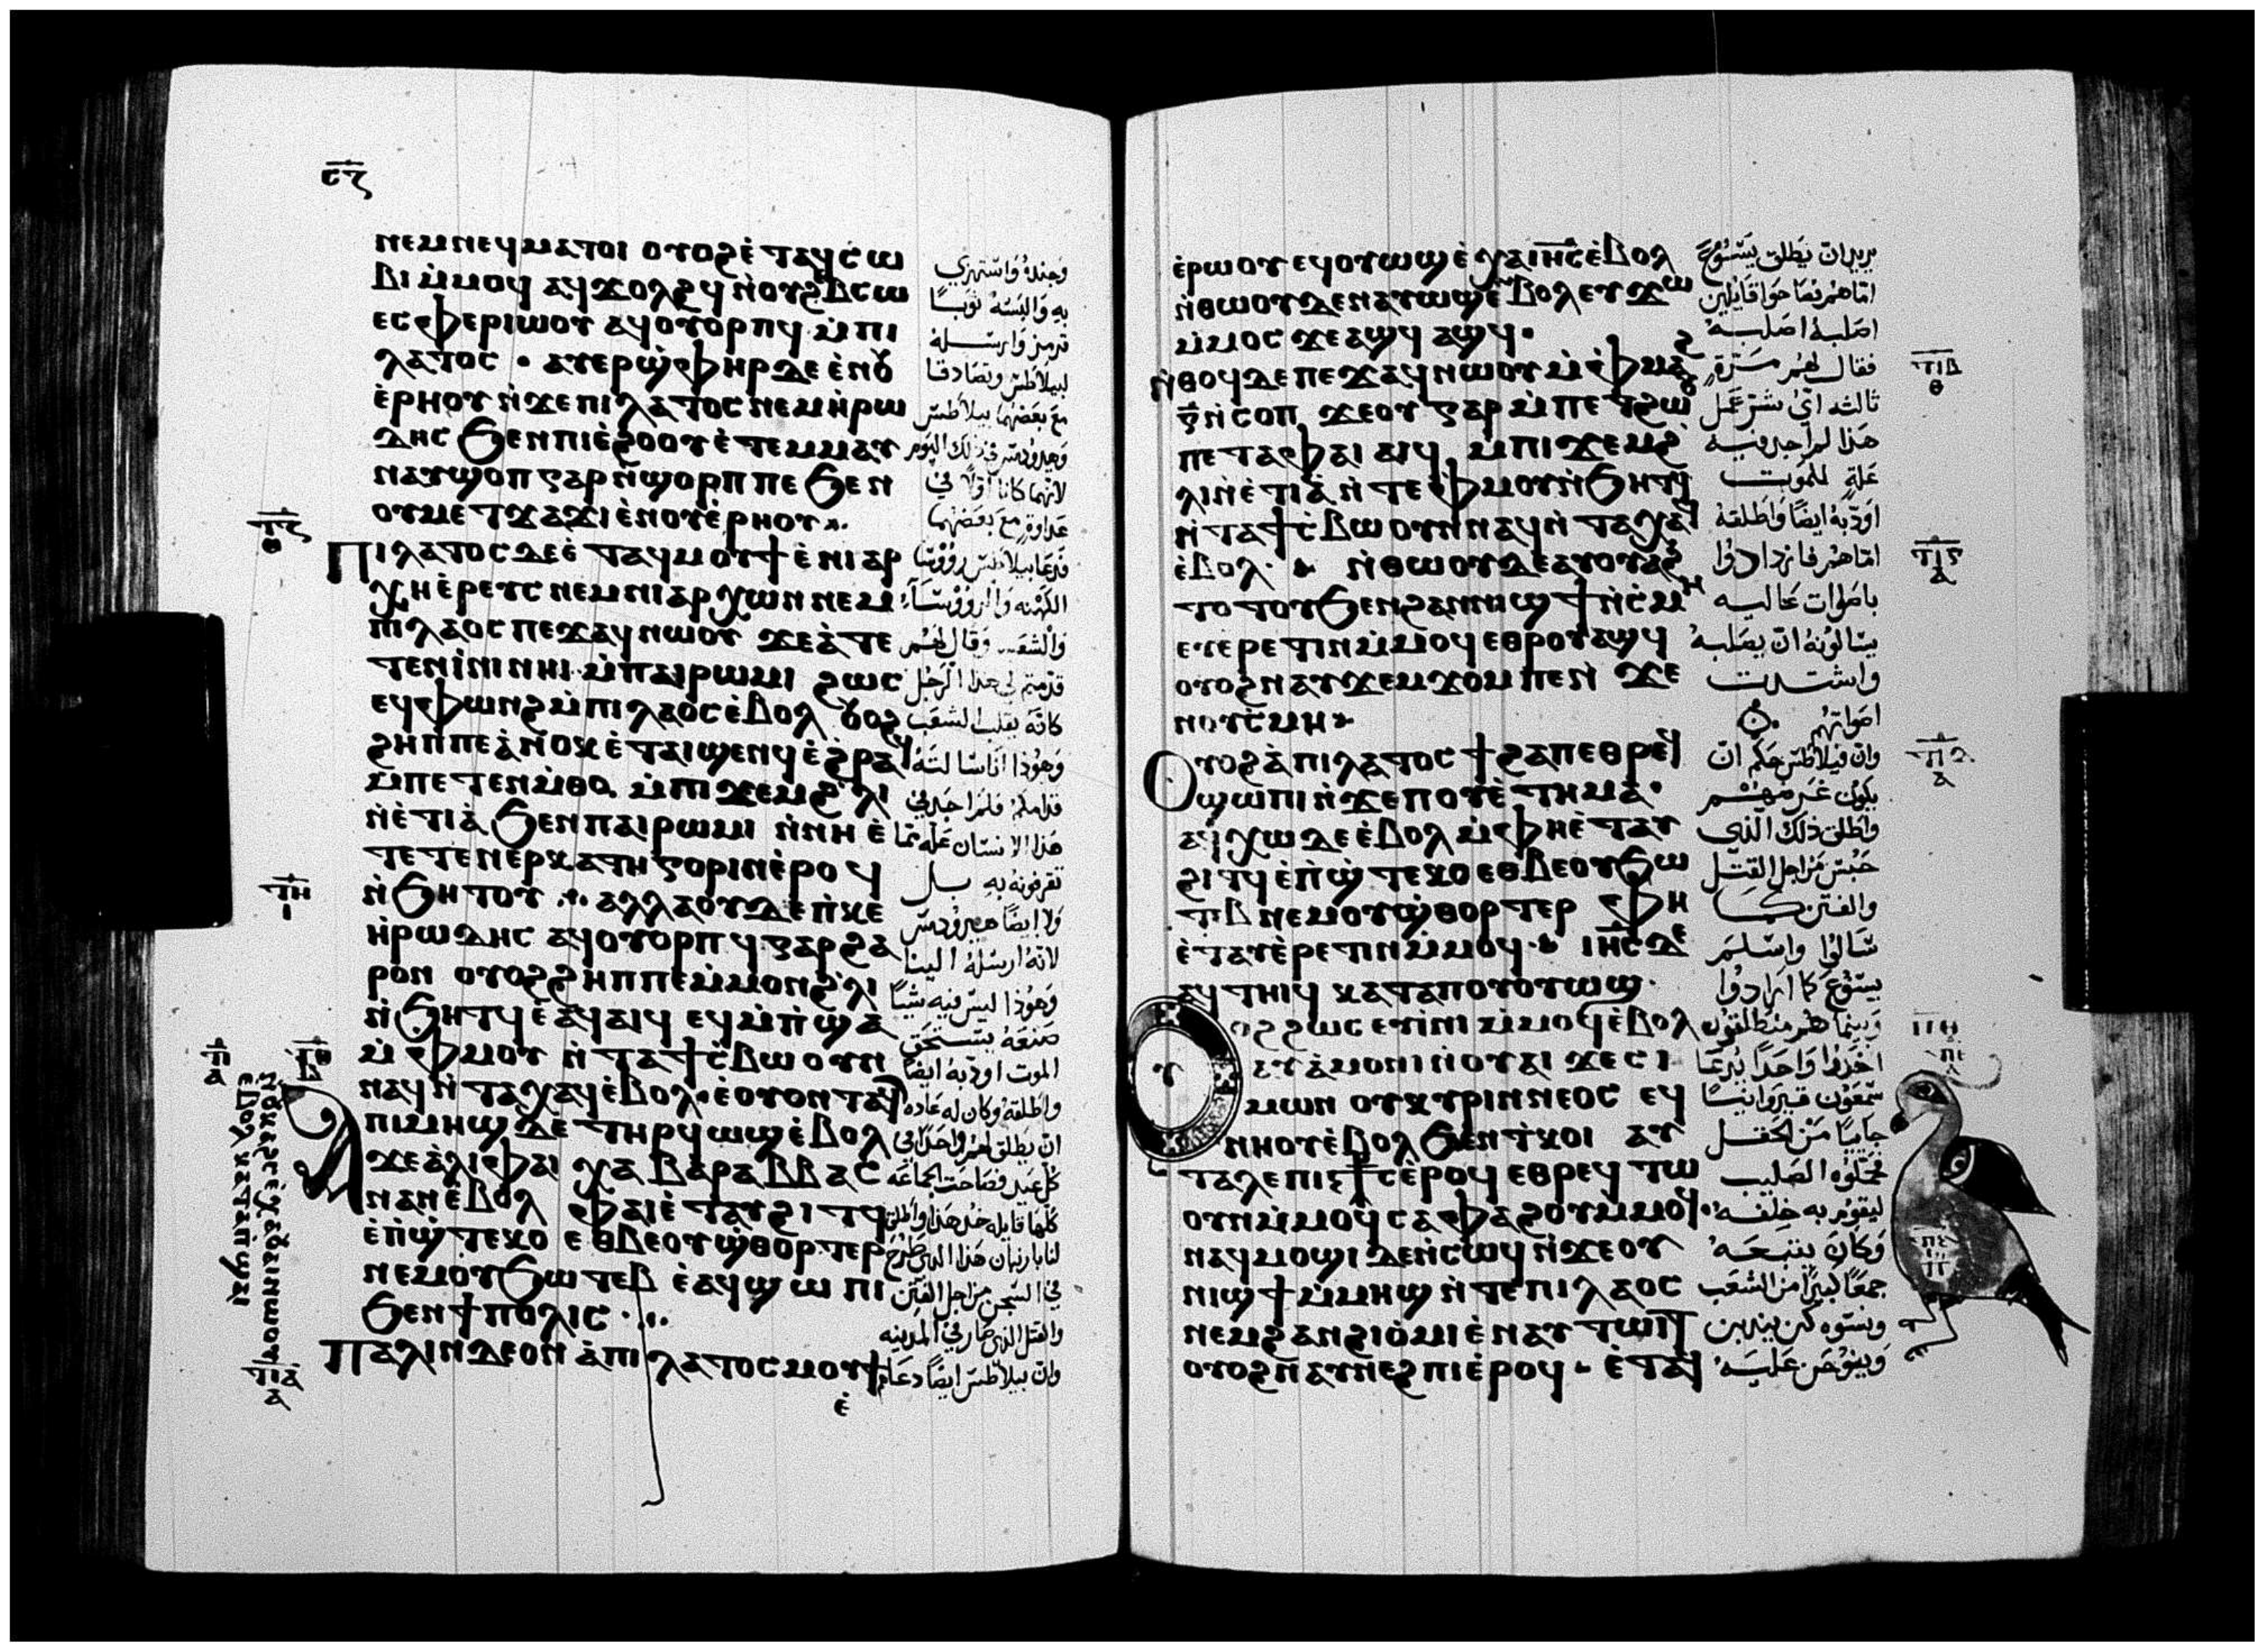 ⲥⲍ
ⲛⲉⲙⲛⲉϥⲙⲁⲧⲟⲓ ⲟⲩⲟϩⲉ̀ⲧⲁϥⲥ̀ⲱ
ⲃⲓ ⲙ̀ⲙⲟϥ ⲁϥϫⲟⲗϩϥ ⲛ̀ⲟⲩϩⲃⲥⲱ
ⲉⲥⲫⲉⲣⲓⲱⲟⲩ ⲁϥⲟⲩⲟⲣⲡϥ ⲙ̀ⲡⲓ
ⲗⲁⲧⲟⲥ · ⲁⲩⲉⲣϣ̀ⲫⲏⲣⲇⲉ ⲉ̀ⲛⲟⲩ
ⲉ̀ⲣⲏⲟⲩ ⲛ̀ϫⲉⲡⲓⲗⲁⲧⲟⲥ ⲛⲉⲙⲏ̀ⲣⲱ
ⲇⲏⲥ ϧⲉⲛⲡⲓⲉ̀ϩⲟⲟⲩ ⲉ̀ⲧⲉⲙⲙⲁⲩ
ⲛⲁⲩϣⲟⲡ ⲅⲁⲣ ⲛ̀ϣⲟⲣⲡ ⲡⲉ ϧⲉⲛ
ⲟⲩⲙⲉⲧϫⲁϫⲓ ⲉ̀ⲛⲟⲩⲉ̀ⲣⲏⲟⲩ
ⲡⲓⲗⲁⲧⲟⲥ ⲇⲉ ⲉ̀ⲧⲁϥⲙⲟⲩϯ ⲉ̀ⲛⲓⲁⲣ
ⲭⲏⲉ̀ⲣⲉⲩⲥ ⲛⲉⲙⲛⲓⲁⲣⲭⲱⲛ ⲛⲉⲙ
ⲡⲓⲗⲁⲟⲥ ⲡⲉϫⲁϥⲛⲱⲟⲩ ϫⲉⲁ̀ⲧⲉ
ⲧⲉⲛⲓ̀ⲛⲓ ⲛⲏⲓ ⲙ̀ⲡⲁⲓⲣⲱⲙⲓ ϩⲱⲥ
ⲉϥⲫⲱⲛϩ ⲙ̀ⲡⲓⲗⲁⲟⲥ ⲉ̀ⲃⲟⲗ ⲟⲩⲟϩ
ϩⲏⲡⲡⲉ ⲁ̀ⲛⲟⲕ ⲉ̀ⲧⲁⲓϣⲉⲛϥ ⲉ̀ϩ̀ⲣⲁϥ
ⲙ̀ⲡⲉⲧⲉⲛⲙ̀ⲑⲟ. ⲙ̀ⲡⲓϫⲉⲙϩ̀ⲗⲓ
ⲛ̀ⲉ̀ⲧⲓⲁ̀ ϧⲉⲛⲡⲁⲓⲣⲱⲙⲓ ⲛ̀ⲛⲏ ⲉ̀
ⲧⲉⲧⲉⲛⲉⲣⲕⲁⲧⲏⲅⲟⲣⲓⲛ ⲉ̀ⲣⲟϥ
ⲛ̀ϧⲏⲧⲟⲩ ·:· ⲁⲗⲗⲁⲟⲩⲇⲉ ⲡ̀ⲕⲉ
ⲏ̀ⲣⲱⲇⲏⲥ ⲁϥⲟⲩⲟⲣⲡϥ ⲅⲁⲣϩⲁ
ⲣⲟⲛ ⲟⲩⲟϩϩⲏⲡⲡⲉ ⲙ̀ⲙⲟⲛϩ̀ⲗⲓ
ⲛ̀ϧⲏⲧϥ ⲉ̀ⲁϥⲁⲓϥ ⲉϥⲙ̀ⲡ̀ϣⲁ
ⲙ̀ⲫⲙⲟⲩ ⲛ̀ⲧⲁϯⲥ̀ⲃⲱ ⲟⲩⲛ
ⲛⲁϥ ⲛ̀ⲧⲁⲭⲁϥ ⲉ̀ⲃⲟⲗ.
ⲁ ⲡⲓⲙⲏϣ ⲇⲉ ⲧⲏⲣϥ ⲱϣ ⲉ̀ⲃⲟⲗ
ϫⲉⲁ̀ⲗⲓⲫⲁⲓ ⲭⲁ ⲃⲁⲣⲁⲃⲃⲁⲥ
ⲛⲁⲛ ⲉ̀ⲃⲟⲗ ⲫⲁⲓ ⲉ̀ⲧⲁⲩϩⲓⲧϥ
ⲉ̀ⲡ̀ϣ̀ⲧⲉⲕⲟ ⲉⲑⲃⲉⲟⲩϣ̀ⲑⲟⲣⲧⲉⲣ
ⲛⲉⲙⲟⲩϧⲱⲧⲉⲃ ⲉ̀ⲁϥϣⲱⲡⲓ
ϧⲉⲛϯⲡⲟⲗⲓⲥ
ⲡⲁⲗⲓⲛ ⲇⲉⲟⲛ ⲁ̀ⲡⲓⲗⲁⲧⲟⲥ ⲙⲟⲩϯ
ⲉ̀
وجنده واستهزي
به والبسه ثوبا
قرمز وارسله
لبيلاطس وتصادقا
مع بعضهما بيلاطس
وهيرودس في ذلك اليوم
لانهما كانا اولا في
عداوة مع بعضهما
فدعا بيلاطس رووسا
الكهنة والرووسا
والشعب وقال لهم
قدمتم لي هذا الرجل
كانه يقلب الشعب
وهوذا انا سالته
قدامكم فلم اجد في
هذا الانسان علة مما
تقرفونه به بل
ولا ايضا هيرودس
لانه ارسله الينا
وهوذا ليس فيه شيا
صنعه يستحق
الموت اودبه ايضا
واطلقه وكان له عادة
ان يطلق لهم واحدا في
كل عيد فصاحت الجماعة
كلها قايلة خذ هذا واطلق
لنا بارنبان هذا الذي طرح
في السجن من اجل الفتن
والقتل الذي صار في المدينه
وان بيلاطس ايضا دعاهم
ⲉ̀ⲣⲱⲟⲩ ⲉϥⲟⲩⲱϣ ⲉ̀ⲭⲁⲓⲏⲥ ⲉ̀ⲃⲟⲗ
ⲛ̀ⲑⲱⲟⲩ ⲇⲉ ⲛⲁⲩⲱϣ ⲉ̀ⲃⲟⲗ ⲉⲩϫⲱ
ⲙ̀ⲙⲟⲥ ϫⲉⲁϣϥ ⲁϣϥ.
ⲛ̀ⲑⲟϥ ⲇⲉ ⲡⲉϫⲁϥ ⲛⲱⲟⲩ ⲙ̀ⲫⲙⲁϩ
ⲅ̄ ⲛ̀ⲥⲟⲡ ϫⲉⲟⲩ ⲅⲁⲣ ⲙ̀ⲡⲉⲧϩⲱⲟⲩ
ⲡⲉⲧⲁⲫⲁⲓ ⲁⲓϥ ⲙ̀ⲡⲓϫⲉⲙϩ̀
ⲗⲓ ⲛ̀ⲉ̀ⲧⲓⲁ̀ ⲛ̀ⲧⲉⲫⲙⲟⲩ ⲛ̀ϧⲏⲧϥ
ⲛ̀ⲧⲁϯⲥ̀ⲃⲱ ⲟⲩⲛ ⲛⲁϥ ⲛ̀ⲧⲁⲭⲁϥ
ⲉ̀ⲃⲟⲗ. ⲛ̀ⲑⲱⲟⲩ ⲇⲉ ⲁⲩⲟⲩⲁϩ
ⲧⲟⲧⲟⲩ ϧⲉⲛϩⲁⲛⲛⲓϣϯ ⲛ̀ⲥ̀ⲙⲏ
ⲉⲩⲉⲣⲉⲧⲓⲛ ⲙ̀ⲙⲟϥ ⲉⲑⲣⲟⲩⲁϣϥ
ⲟⲩⲟϩ ⲛⲁⲩϫⲉⲙϫⲟⲙ ⲡⲉⲛ ϫⲉ
ⲛⲟⲩⲥ̀ⲙⲏ
ⲟⲩⲟϩ ⲁ̀ⲡⲓⲗⲁⲧⲟⲥ ϯϩⲁⲡ ⲉⲑⲣⲉϥ
ϣⲱⲡⲓ ⲛ̀ϫⲉⲡⲟⲩⲉ̀ⲧⲏⲙⲁ.
ⲁϥⲭⲱ ⲇⲉ ⲉ̀ⲃⲟⲗ ⲙ̀ⲫⲏ ⲉ̀ⲧⲁⲩ
ϩⲓⲧϥ ⲉ̀ⲡ̀ϣ̀ⲧⲉⲕⲟ ⲉⲑⲃⲉⲟⲩϧⲱ
ⲧⲉⲃ ⲛⲉⲙⲟⲩϣ̀ⲑⲟⲣⲧⲉⲣ ⲫⲏ
ⲉ̀ⲧⲁⲩⲉ̀ⲣⲉⲧⲓⲛ ⲙ̀ⲙⲟϥ. ⲓⲏⲥ ⲇⲉ
ⲁϥⲧⲏⲓϥ ⲕⲁⲧⲁⲡⲟⲩⲟⲩⲱϣ.
ⲟⲩⲟϩϩⲱⲥ ⲉⲩⲓ̀ⲛⲓ ⲙ̀ⲙⲟϥ ⲉ̀ⲃⲟⲗ
ⲁⲩⲁ̀ⲙⲟⲛⲓ ⲛ̀ⲟⲩⲁⲓ ϫⲉⲥⲓ
ⲙⲱⲛ ⲟⲩⲕⲩⲣⲓⲛⲛⲉⲟⲥ ⲉϥ
ⲛⲏⲟⲩ ⲉ̀ⲃⲟⲗ ϧⲉⲛⲧ̀ⲕⲟⲓ ⲁⲩ
ⲧⲁⲗⲉ ⲡⲓⲥϯⲥ ⲉ̀ⲣⲟϥ ⲉⲑⲣⲉϥⲧⲱ
ⲟⲩⲛ ⲙ̀ⲙⲟϥ ⲥⲁⲫⲁϩⲟⲩ ⲙ̀ⲙⲟϥ.
ⲛⲁϥⲙⲟϣⲓ ⲇⲉ ⲛ̀ⲥⲱϥ ⲛ̀ϫⲉⲟⲩ
ⲛⲓϣϯ ⲙ̀ⲙⲏϣ ⲛ̀ⲧⲉⲡⲓⲗⲁⲟⲥ
ⲛⲉⲙϩⲁⲛϩⲓⲟ̀ⲙⲓ ⲉ̀ⲛⲁⲩⲧⲱⲓⲧ
ⲟⲩⲟϩ ⲛⲁⲩⲛⲉϩⲡⲓ ⲉ̀ⲣⲟϥ. ⲉ̀ⲧⲁϥ
يريد ان يطلق يسوع
اما هم فصاحوا قايلين
اصلبه اصلبه
فقال لهم مرة
ثالثه اي شر عمل
هذا لم اجد فيه
علة للموت
اودبه ايضا واطلقه
اما هم فازدادوا
باصوات عالية
يسالونه ان يصلبه
واشتدت
اصواتهم
وان فيلاطس حكم ان
يكون غرضهم
واطلق ذلك الذي
حبس من اجل القتل
والفتن كما
سالوا واسلم
يسوع كما ارادوا
وبينما هم منطلقون
اخذوا واحدا يدعا
سمعون قيروانيسا
جاييا من الحقل
فحملوا الصليب
ليقوم به خلفه
وكان يتبعه
جمعا كبيرا من الشعب
ونسوه كن يندبن
وينوحن عليه